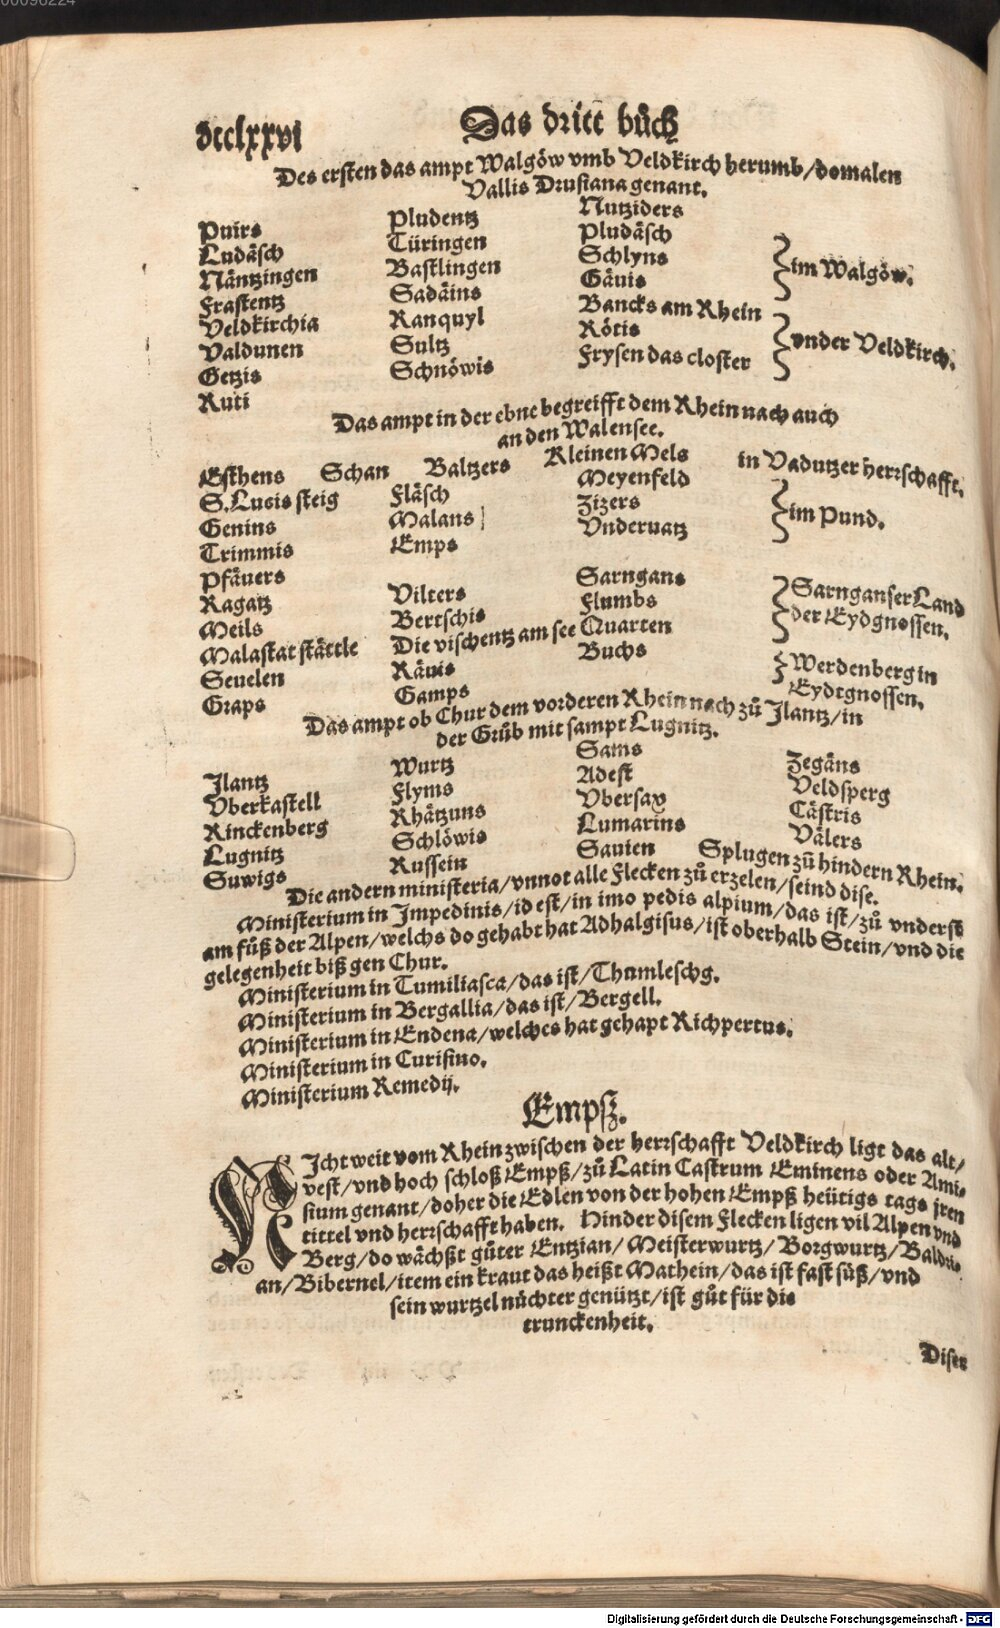 00096224
dcclxxvi Das dritt bůch
Des ersten das ampt Walgöw vmb Veldkirch herumb/domalen
Vallis Drusiana genant.
Puirs Pludentz Nutziders
Ludäsch Türingen Pludäsch
Näntzingen Bastlingen Schlyns
Frastentz Sadäins Gävis } im Walgöw.
Veldkirchia Ranquyl Bancks am Rhein
Valdunen Sultz Rötis
Getzis Schnöwis Frysen das closter } vnder Veldkirch.
Ruti
Das ampt in der ebne begreifft dem Rhein nach auch
an den Walensee.
Esthens Schan Baltzers Kleinen Mels in Vadutzer herrschafft.
S.Lucis steig Fläsch Meyenfeld
Genins Malans Zizers } im Pund.
Trimmis Emps Vnderuatz
Pfäuers
Ragatz Vilters Sarngans
Meils Bertschis Flumbs } Sarnganser Land
Malastat stättle Die vischentz am see Quarten der Eydgnossen.
Seuelen Räuis Buchs } Werdenberg in
Graps Gamps Eydtgnossen.
Das ampt ob Chur dem vorderen Rhein nach zů Jlantz/in
der Grůb mit sampt Lugnitz.
Jlantz Wurtz Sams Zegäns
Vberkastell Flyms Adest Veldsperg
Rinckenberg Rhätzuns Vbersax Cästris
Lugnitz Schlöwis Lumarins Välers
Suwigs Russein Sauien Splugen zů hindern Rhein.
Die andern ministeria/vnnot alle Flecken zů erzelen/seind dise.
Ministerium in Impedinis/id est/in imo pedis alpium/das ist/zů vnderst
am fůß der Alpen/welchs do gehabt hat Adhalgisus/ist oberhalb Stein/vnd die
gelegenheit biß gen Chur.
Ministerium in Tumiliasca/das ist/Thumleschg.
Ministerium in Bergallia/das ist/Bergell.
Ministerium in Endena/welches hat gehapt Richpertus.
Ministerium in Curisino.
Ministerium Remedij.
Empsz.
NIcht weit vom Rhein zwischen der herrschafft Veldkirch ligt das alt/
vest/vnd hoch schloß Empß/zů Latin Castrum Eminens oder Ami-
sium genant/doher die Edlen von der hohen Empß heütigs tags jren
tittel vnd herrschafft haben. Hinder disem Flecken ligen vil Alpen vnd
Berg/do wächßt gůter Entzian/Meisterwurtz/Borgwurtz/Baldri-
an/Bibernel/item ein kraut das heißt Mathein/das ist fast süß/vnd
sein wurtzel nůchter genützt/ist gůt für die
trunckenheit.
Diser
Digitalisierung gefördert durch die Deutsche Forschungsgemeinschaft - DFG